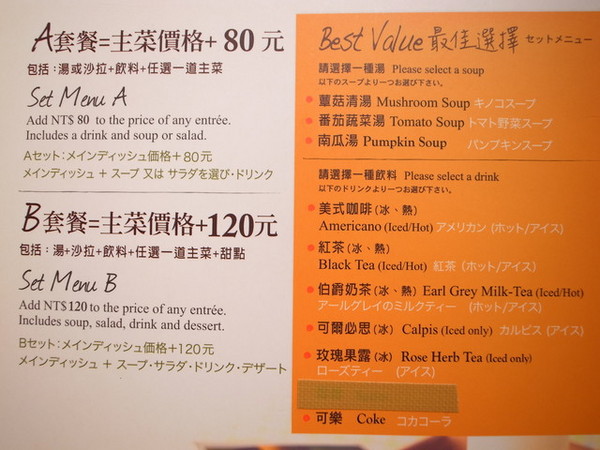 A套餐=主菜價格+80元
包括:湯或沙拉+飲料+任選一道主菜
Set Menu A
Add NT$ 80 to the price of any entrée.
Includes a drink and soup or salad.
Aセット:メインディッシュ価格+80元
メインディッシュ + スープ 又は サラダを選び・ドリンク
B套餐=主菜價格+120元
包括:湯+沙拉+飲料+任選一道主菜+甜點
Set Menu B
Add NT$120 to the price of any entrée.
Includes soup, salad, drink and dessert.
Bセット:メインディッシュ価格+120元
メインディッシュ + スープ・サラダ・ドリンク・デザート
Best Value 最佳選擇 セットメニュー
請選擇一種湯 Please select a soup
以下のスープより一つお選び下さい。
蕈菇清湯 Mushroom Soup キノコスープ
番茄蔬菜湯 Tomato Soup トマト野菜スープ
南瓜湯 Pumpkin Soup パンプキンスープ
請選擇一種飲料 Please select a drink
以下のドリンクより一つお選び下さい。
美式咖啡(冰、熱)
Americano (Iced/Hot) アメリカン (ホット/アイス)
紅茶(冰、熱)
Black Tea (Iced/Hot) 紅茶 (ホット/アイス)
伯爵奶茶(冰、熱) Earl Grey Milk-Tea (Iced/Hot)
アールグレイのミルクティー (ホット/アイス)
可爾必思(冰) Calpis (Iced only) カルピス (アイス)
玫瑰果露(冰) Rose Herb Tea (Iced only)
ローズティー (アイス)
可樂 Coke コカコーラ